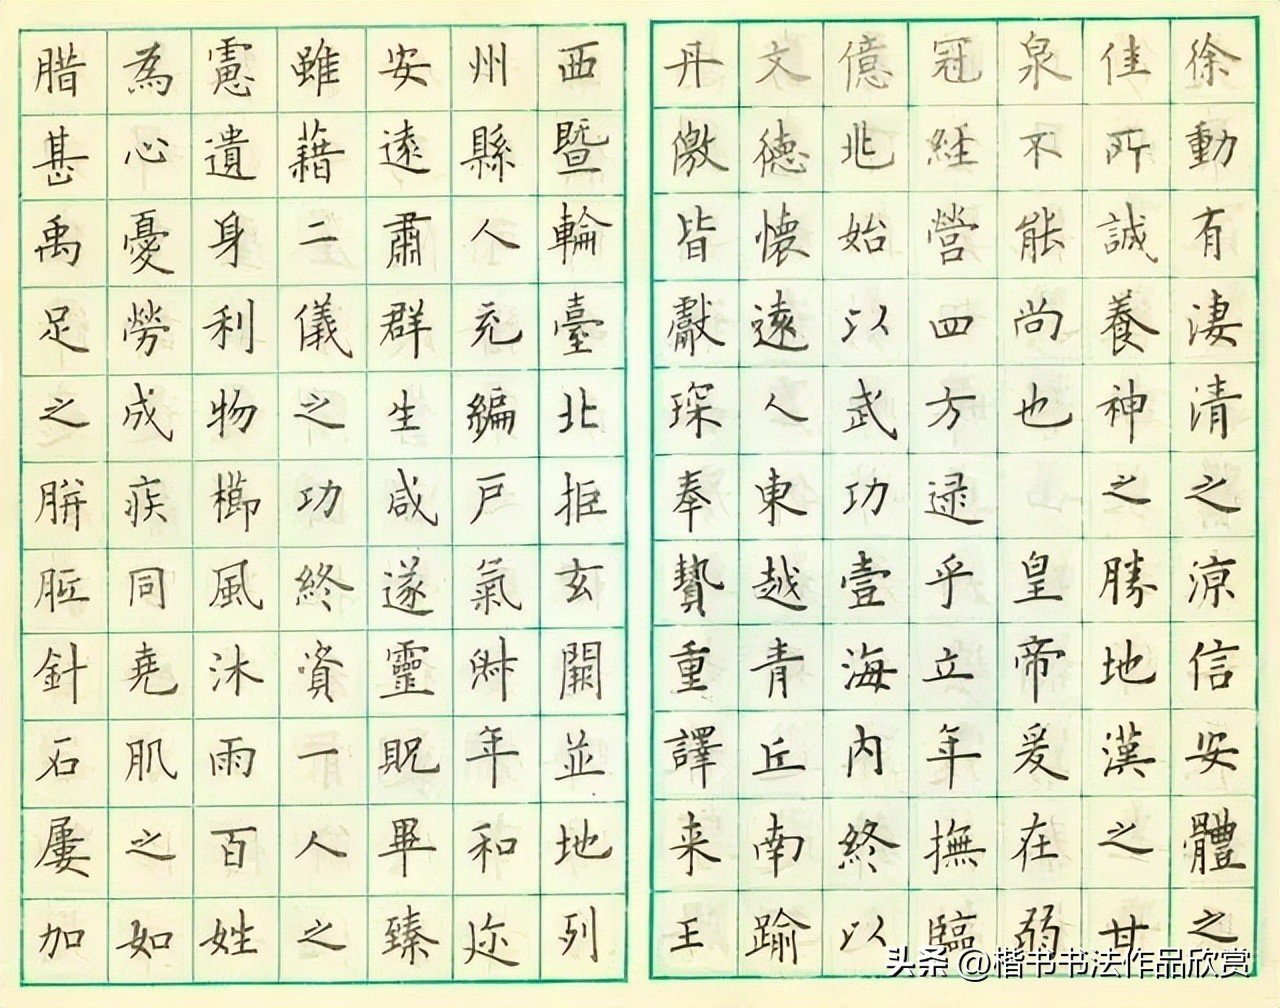 徐動有淒清之涼信安體之
佳所誠養神之勝地漢之甘
泉不能尚也 皇帝爰在弱
冠經營四方逮乎立年撫臨
億兆始以武功壹海内終以
文德懷遠人東越青丘南踰
丹儌皆獻琛奉贄重譯来王
西暨輪臺北拒玄闕並地列
州縣人充編戶氣淑年和迩
安遠肅群生咸遂靈貺畢臻
雖藉二儀之功終資一人之
慮遺身利物櫛風沐雨百姓
為心憂勞成疾同堯肌之如
腊甚禹足之胼胝針石屢加
头条 @楷书书法作品欣赏